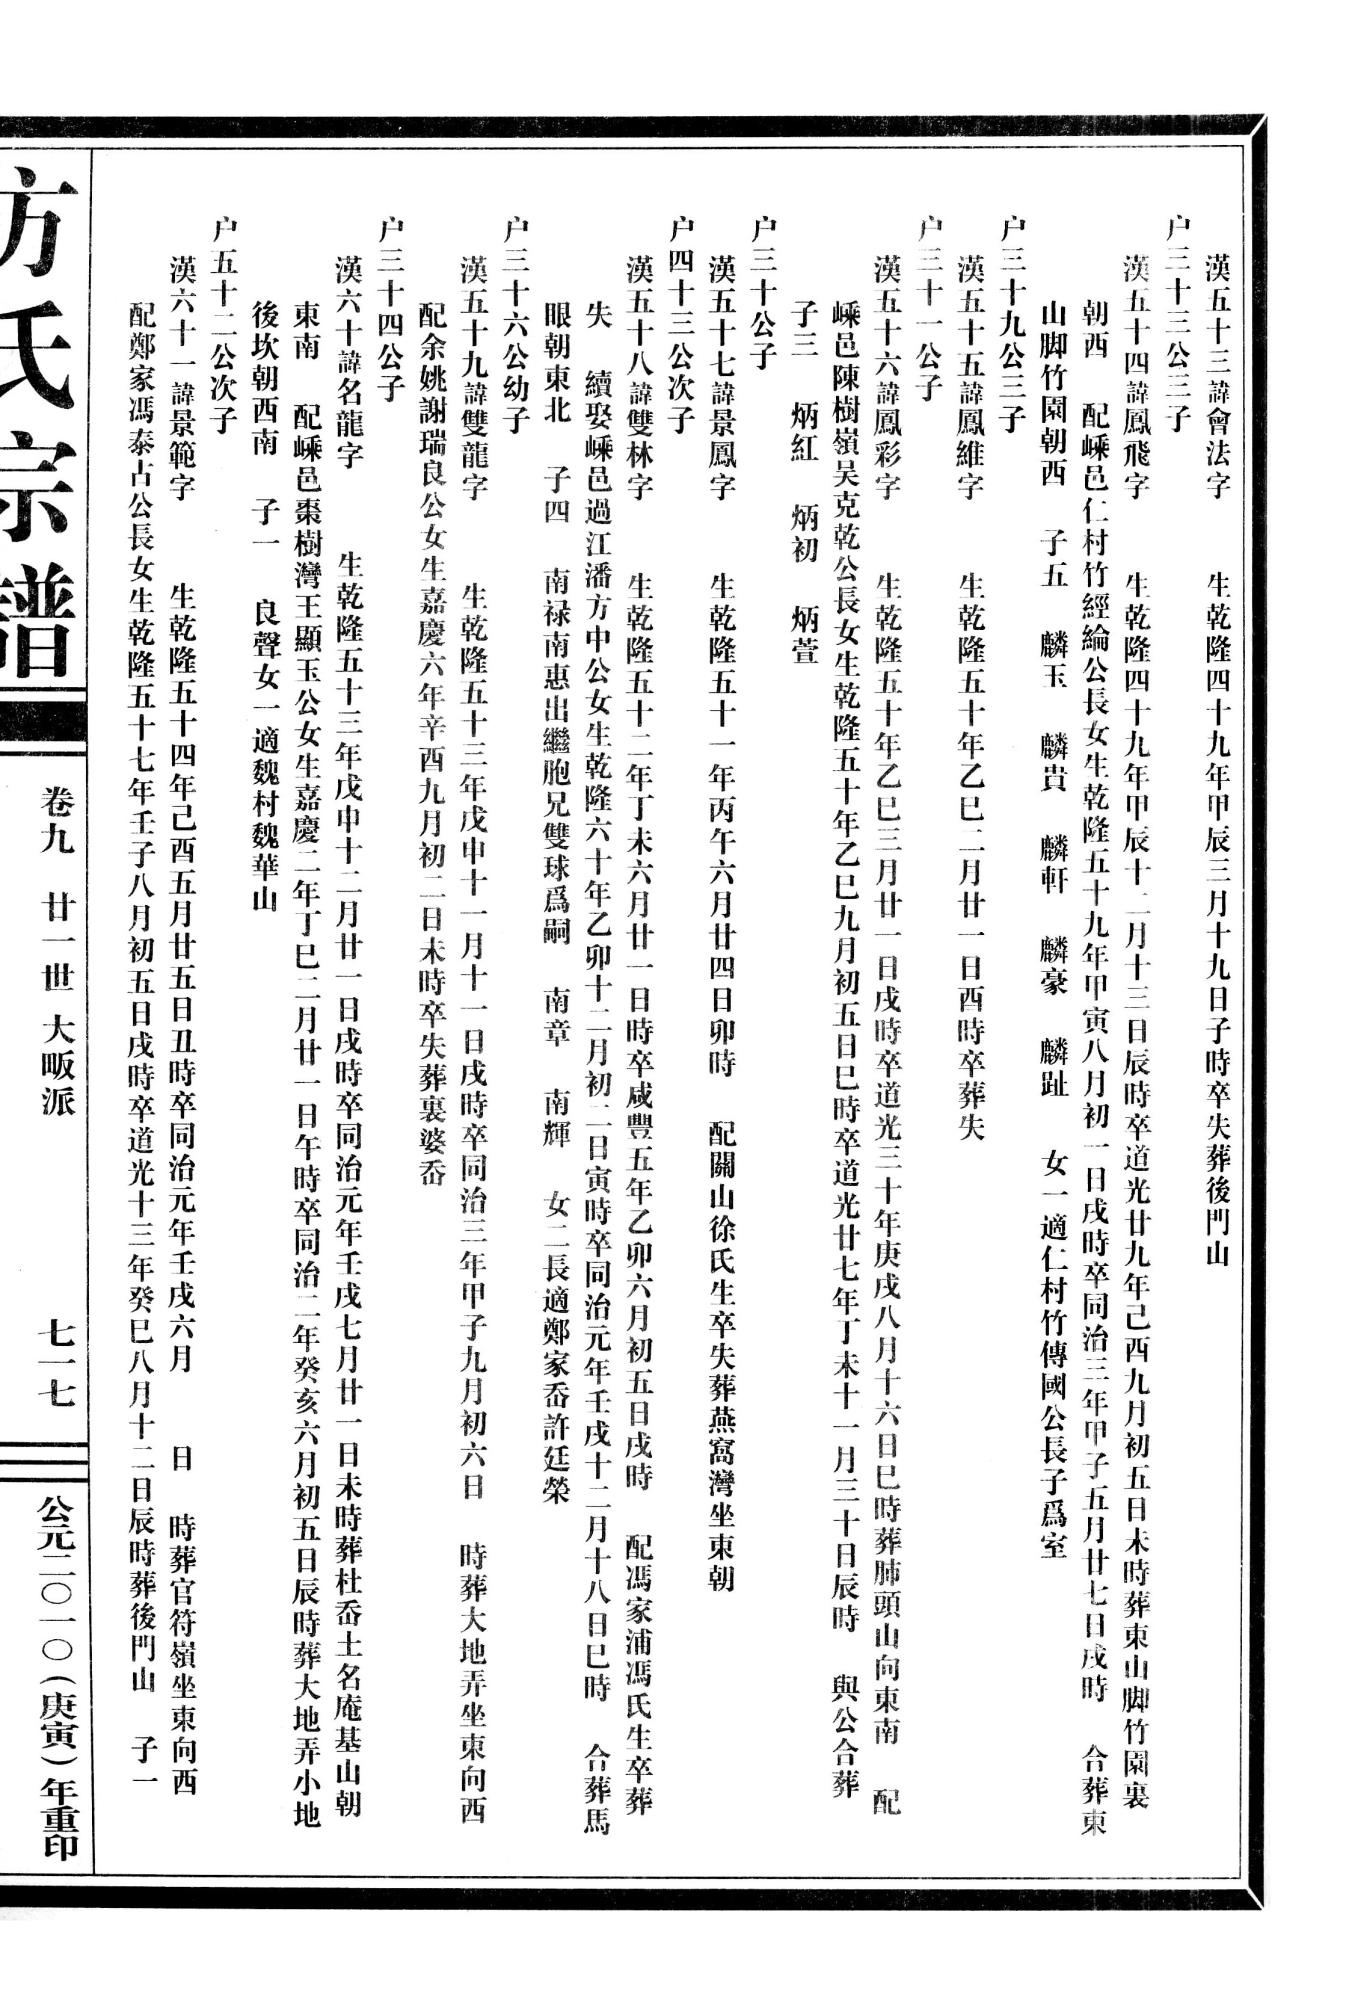 漢五十三諱會法字　生乾隆四十九年甲辰三月十九日子時卒失葬後門山
户二十三公三子
漢五十四諱鳳飛字　生乾隆四十九年甲辰十二月十三日辰時卒道光廿九年己酉九月初五日未時葬東山脚竹園裏
朝西　配嵊邑仁村竹經綸公長女生乾隆五十九年甲寅八月初一日戌時卒同治三年甲子五月廿七日戌時　合葬東
山脚竹園朝西　子五　麟玉　麟貴　麟軒　麟豪　麟趾　女一適仁村竹傳國公長子爲室
户三十九公三子
漢五十五諱鳳維字　生乾隆五十年乙巳二月廿一日酉時卒葬失
户三十一公子
漢五十六諱鳳彩字　生乾隆五十年乙巳三月廿一日戌時卒道光三十年庚戌八月十六日巳時葬肺頭山向東南　配
嵊邑陳樹嶺吴克乾公長女生乾隆五十年乙巳九月初五日巳時卒道光廿七年丁未十一月三十日辰時　與公合葬
子三　炳紅　炳初　炳萱
户三十公子
漢五十七諱景鳳字　生乾隆五十一年丙午六月廿四日卯時　配關山徐氏生卒失葬燕窩灣坐東朝
户四十三公次子
漢五十八諱雙林字　生乾隆五十二年丁未六月廿一日時卒咸豐五年乙卯六月初五日戌時　配馮家浦馮氏生卒葬
失　續娶嵊邑過江潘方中公女生乾隆六十年乙卯十二月初二日寅時卒同治元年壬戌十二月十八日巳時　合葬馬
眼朝東北　子四　南禄南惠出繼胞兄雙球爲嗣　南章　南輝　女二長適鄭家岙許廷榮
户三十六公幼子
漢五十九諱雙龍字　生乾隆五十三年戊申十一月十一日戌時卒同治三年甲子九月初六日　時葬大地弄坐東向西
配余姚謝瑞良公女生嘉慶六年辛酉九月初二日未時卒失葬裏婆岙
户三十四公子
漢六十諱名龍字　生乾隆五十三年戊申十二月廿一日戌時卒同治元年壬戌七月廿一日未時葬杜岙土名庵基山朝
東南　配嵊邑棗樹灣王顯玉公女生嘉慶二年丁巳二月廿一日午時卒同治二年癸亥六月初五日辰時葬大地弄小地
後坎朝西南　子一　良聲女一適魏村魏華山
户五十二公次子
漢六十一諱景範字　生乾隆五十四年己酉五月廿五日丑時卒同治元年壬戌六月　日　時葬官符嶺坐東向西
配鄭家馮泰占公長女生乾隆五十七年壬子八月初五日戌時卒道光十三年癸巳八月十二日辰時葬後門山　子一
方氏宗譜
卷九　廿一世　大畈派
七一七
公元二〇一〇（庚寅）年重印